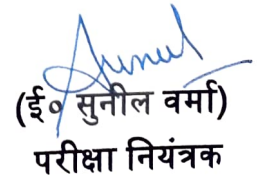 (ई० सुनील वर्मा)
परीक्षा नियंत्रक